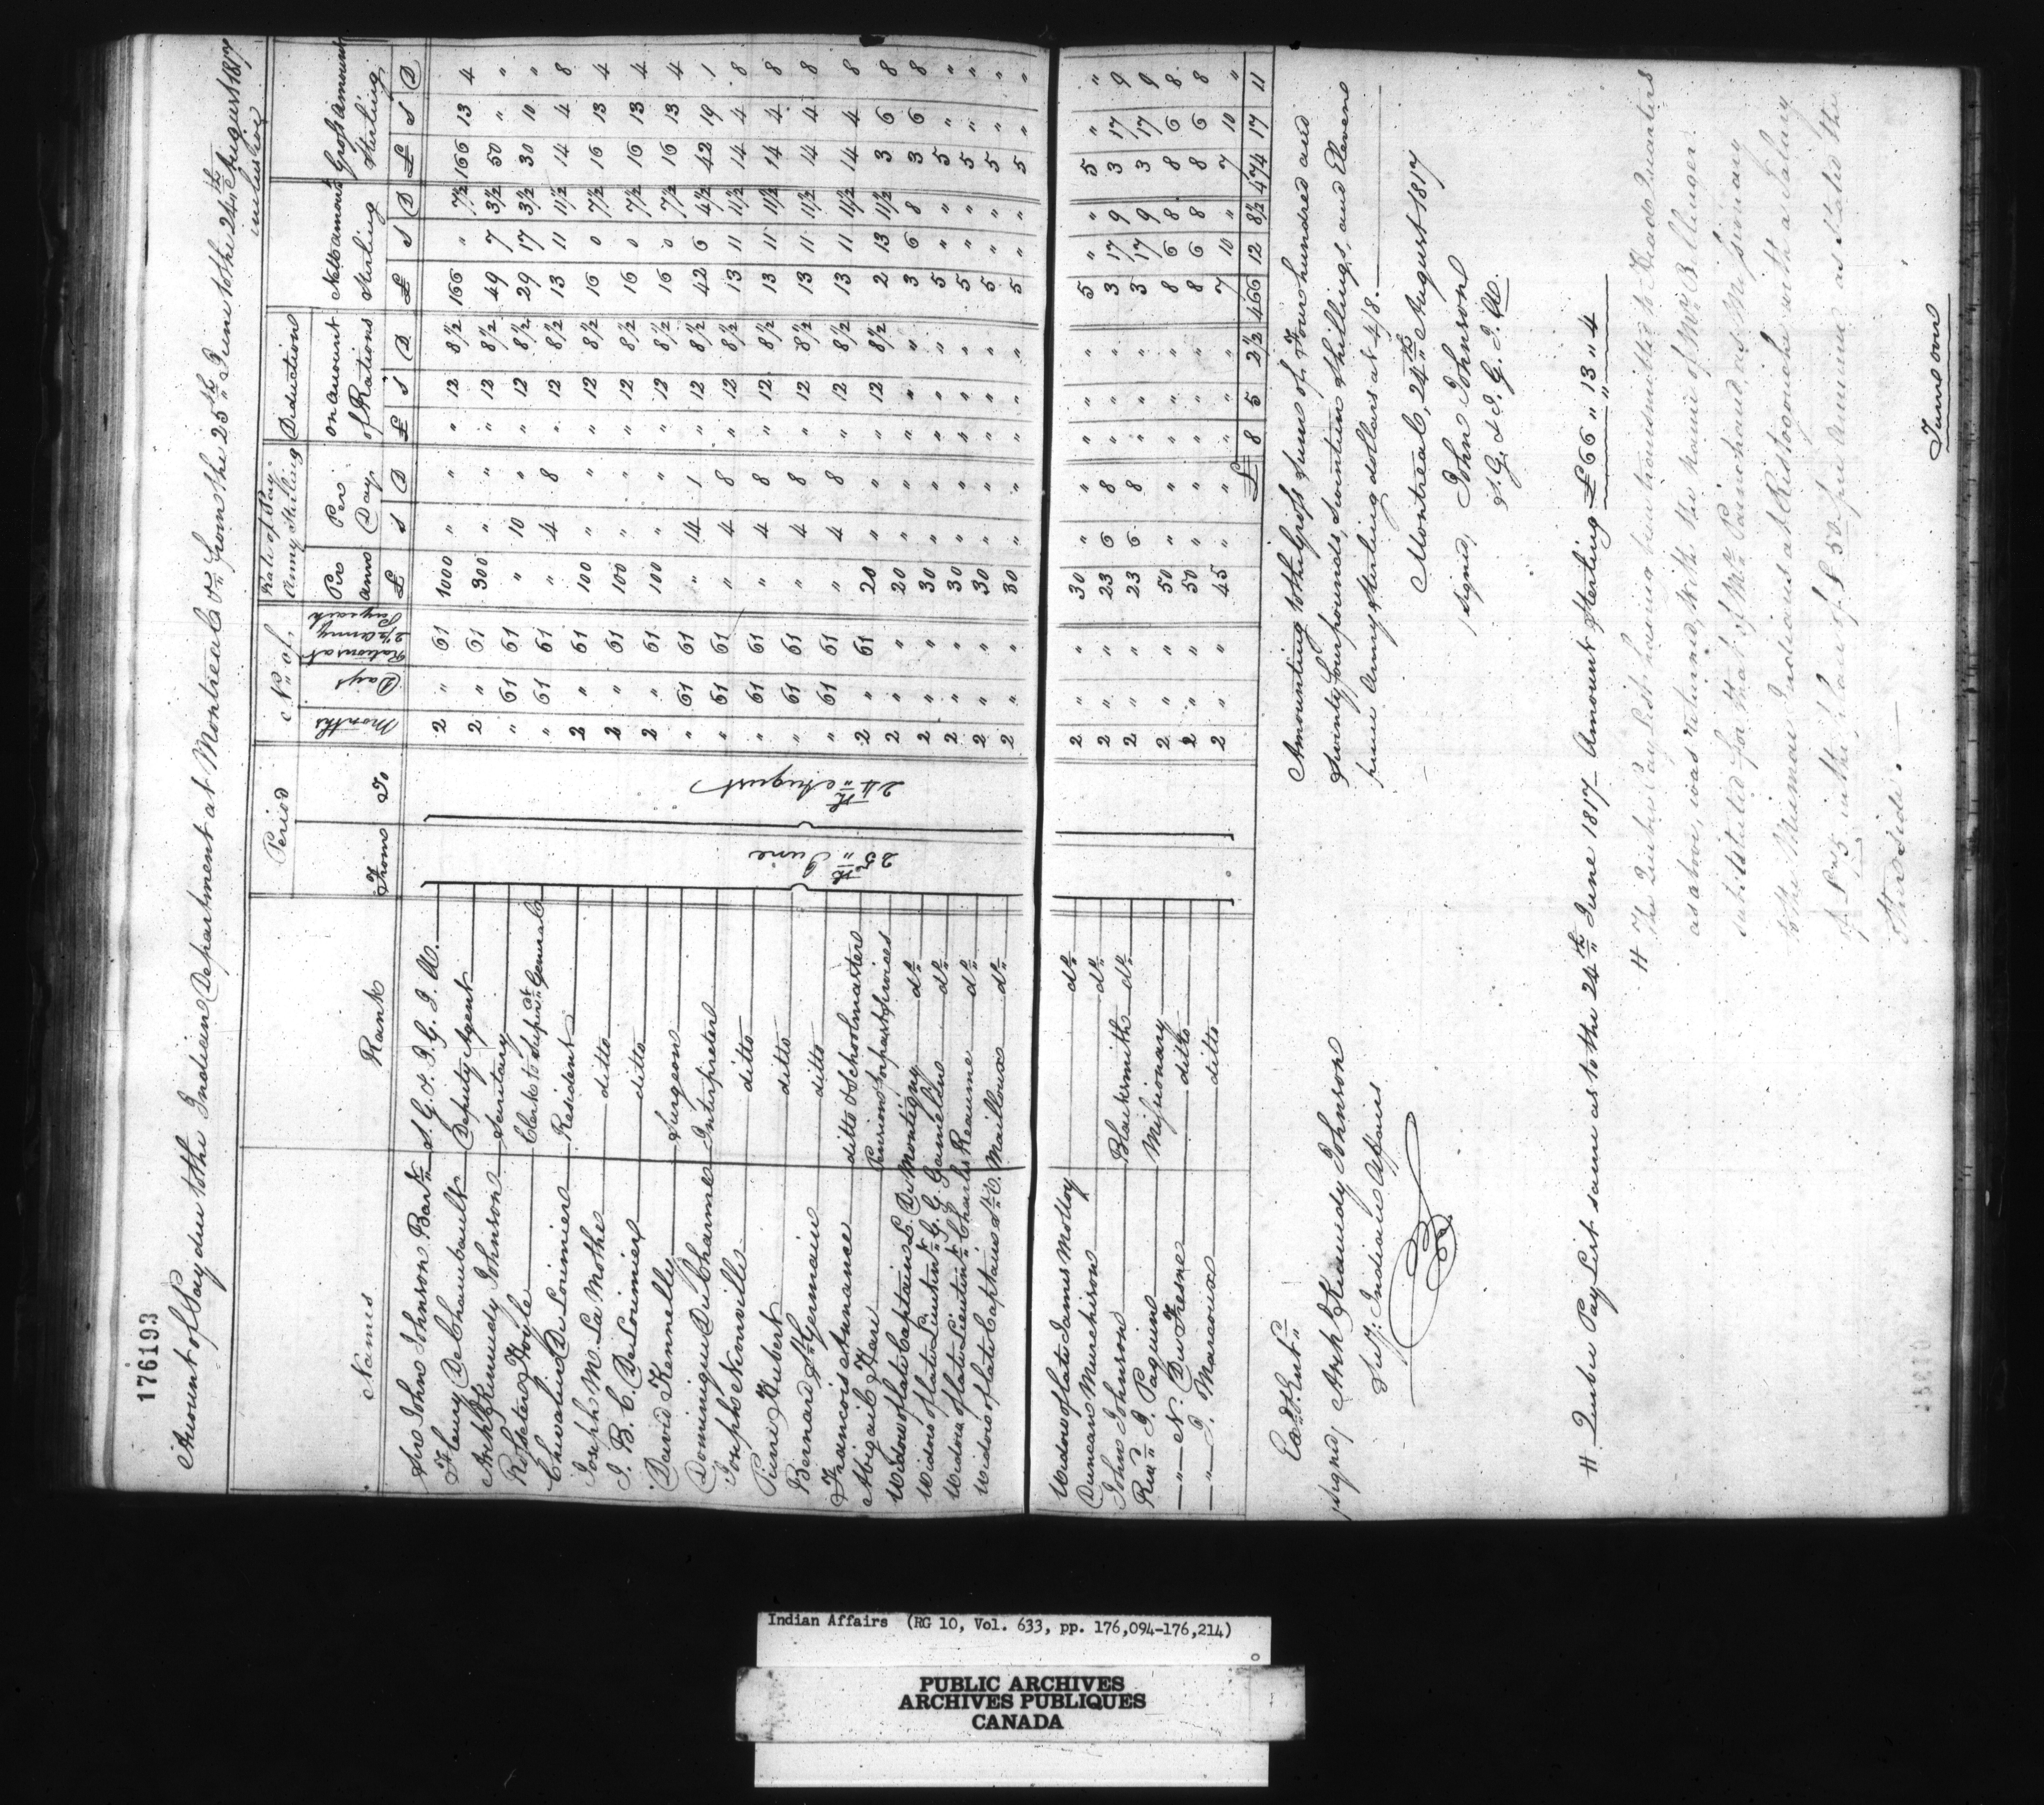 176193
Amount of Pay due to the Indian Department at Montreal &c. from the 25th June to the 24th August 1817
inclusive
Names Rank Period No. of Rate of Pay Army Sterling Deduction on amount of Rations Nett amount Sterling Gross amount Sterling
From To Months Days Rations at 2½ Army Pay each Per ann Per Day
£ S D £ S D £ S D £ S D
Sir John Johnson Bart. S. G. & I. G. I. A. 2 " 61 1000 " " " 12 8½ 166 " 7½ 166 13 4
Fleury De Chambault Deputy Agent 2 " 61 300 " " " 12 8½ 49 7 3½ 50 " "
Arch Kennedy Johnson Secretary " 61 61 " 10 " " 12 8½ 29 17 3½ 30 10 "
Rossiter Hoyle Clerk to Superint. General " 61 61 " 4 8 " 12 8½ 13 11 11½ 14 4 8
Chevalier De Lorimier Resident 2 " 61 100 " " " 12 8½ 16 0 7½ 16 13 4
Joseph M. La Mothe ditto 2 " 61 100 " " " 12 8½ 16 0 7½ 16 13 4
J. B. C. De Lorimier ditto 2 " 61 100 " " " 12 8½ 16 0 7½ 16 13 4
David Kennelly Surgeon " 61 61 " 14 1 " 12 8½ 42 6 4½ 42 19 1
Dominique Du Charme Interpreter " 61 61 " 4 8 " 12 8½ 13 11 11½ 14 4 8
Joseph Ninville ditto " 61 61 " 4 8 " 12 8½ 13 11 11½ 14 4 8
Pierre Hubert ditto " 61 61 " 4 8 " 12 8½ 13 11 11½ 14 4 8
Bernard St. Germain ditto " 61 61 " 4 8 " 12 8½ 13 11 11½ 14 4 8
Francois Annance ditto & Schoolmaster 2 " 61 20 " " " 12 8½ 2 13 11½ 3 6 8
Abigail Hare Pension for past Services 2 " " 20 " " " " " 3 6 8 3 6 8
Widow of late Captain L. De Montigny do. 2 " " 30 " " " " " 5 " " 5 " "
Widow of late Lieutent. G. Gamelin do. 2 " " 30 " " " " " 5 " " 5 " "
Widow of late Lieutent. Charles Reaume do. 2 " " 30 " " " " " 5 " " 5 " "
Widow of late Captain St. C. Mailloux do. 2 " " 30 " " " " " 5 " " 5 " "
25th June
24th August
Widow of late James Molloy do. 2 " " 30 " " " " " 5 " " 5 " "
Duncan Murchison do. 2 " " 23 6 8 " " " 3 17 9 3 17 9
John Johnson Blacksmith do. 2 " " 23 6 8 " " " 3 17 9 3 17 9
Revd. J. Paquin Missionary 2 " " 50 " " " " " 8 6 8 8 6 8
" N. Du Fresne ditto 2 " " 50 " " " " " 8 6 8 8 6 8
" J. Marcoux ditto 2 " " 45 " " " " " 7 10 " 7 10 "
£ 8 5 2½ 466 12 8½ 474 17 11
Amounting to the Gross Sum of Four hundred and
Seventy four pounds, Seventeen shillings, and Eleven
pence Army Sterling dollars at 4/8.
Montreal, 24th August 1817
signed, John Johnson
S. G. & I. G. I. A.
Signed, Arch Kennedy Johnson
Secy. Indian Affairs
# Quebec Pay List same as to the 24th June 1817 Amount Sterling £66 " 13 " 4
# The Quebec Pay List having been transmitted to Head Quarters
as above, was returned, with the name of Mr. Bellenger
substituted for that of Mr. Painchaud, as Missionary
to the Micmac Indians at Ristogouche with a Salary
in the place of £50 per annum as stated the
other side.
Turn over
Indian Affairs (RG 10, Vol. 633, pp. 176,094-176,214)
PUBLIC ARCHIVES
ARCHIVES PUBLIQUES
CANADA